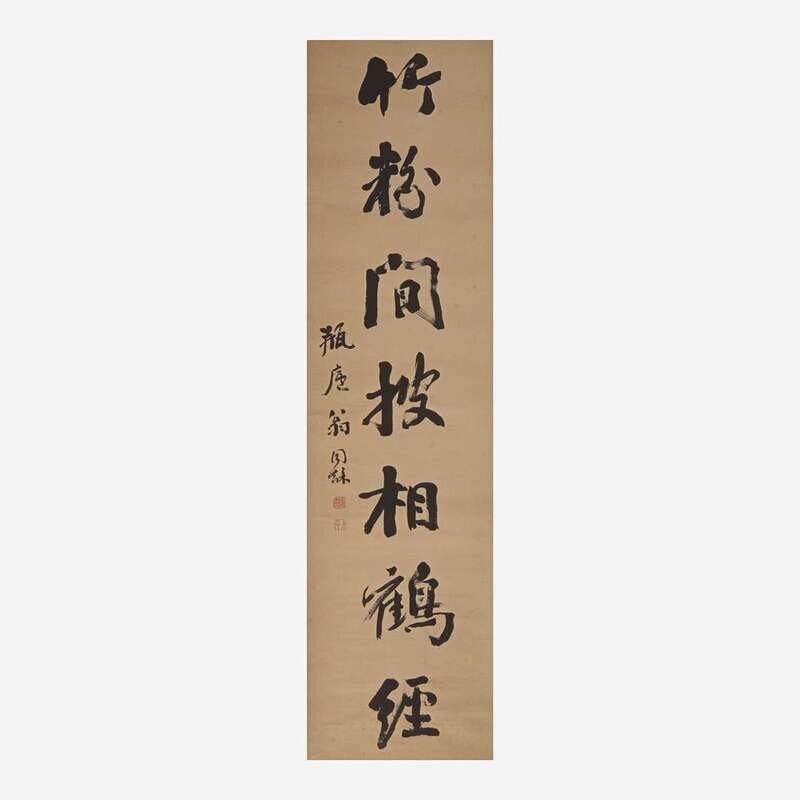 竹粉間披相鶴經
瓶廬翁同龢